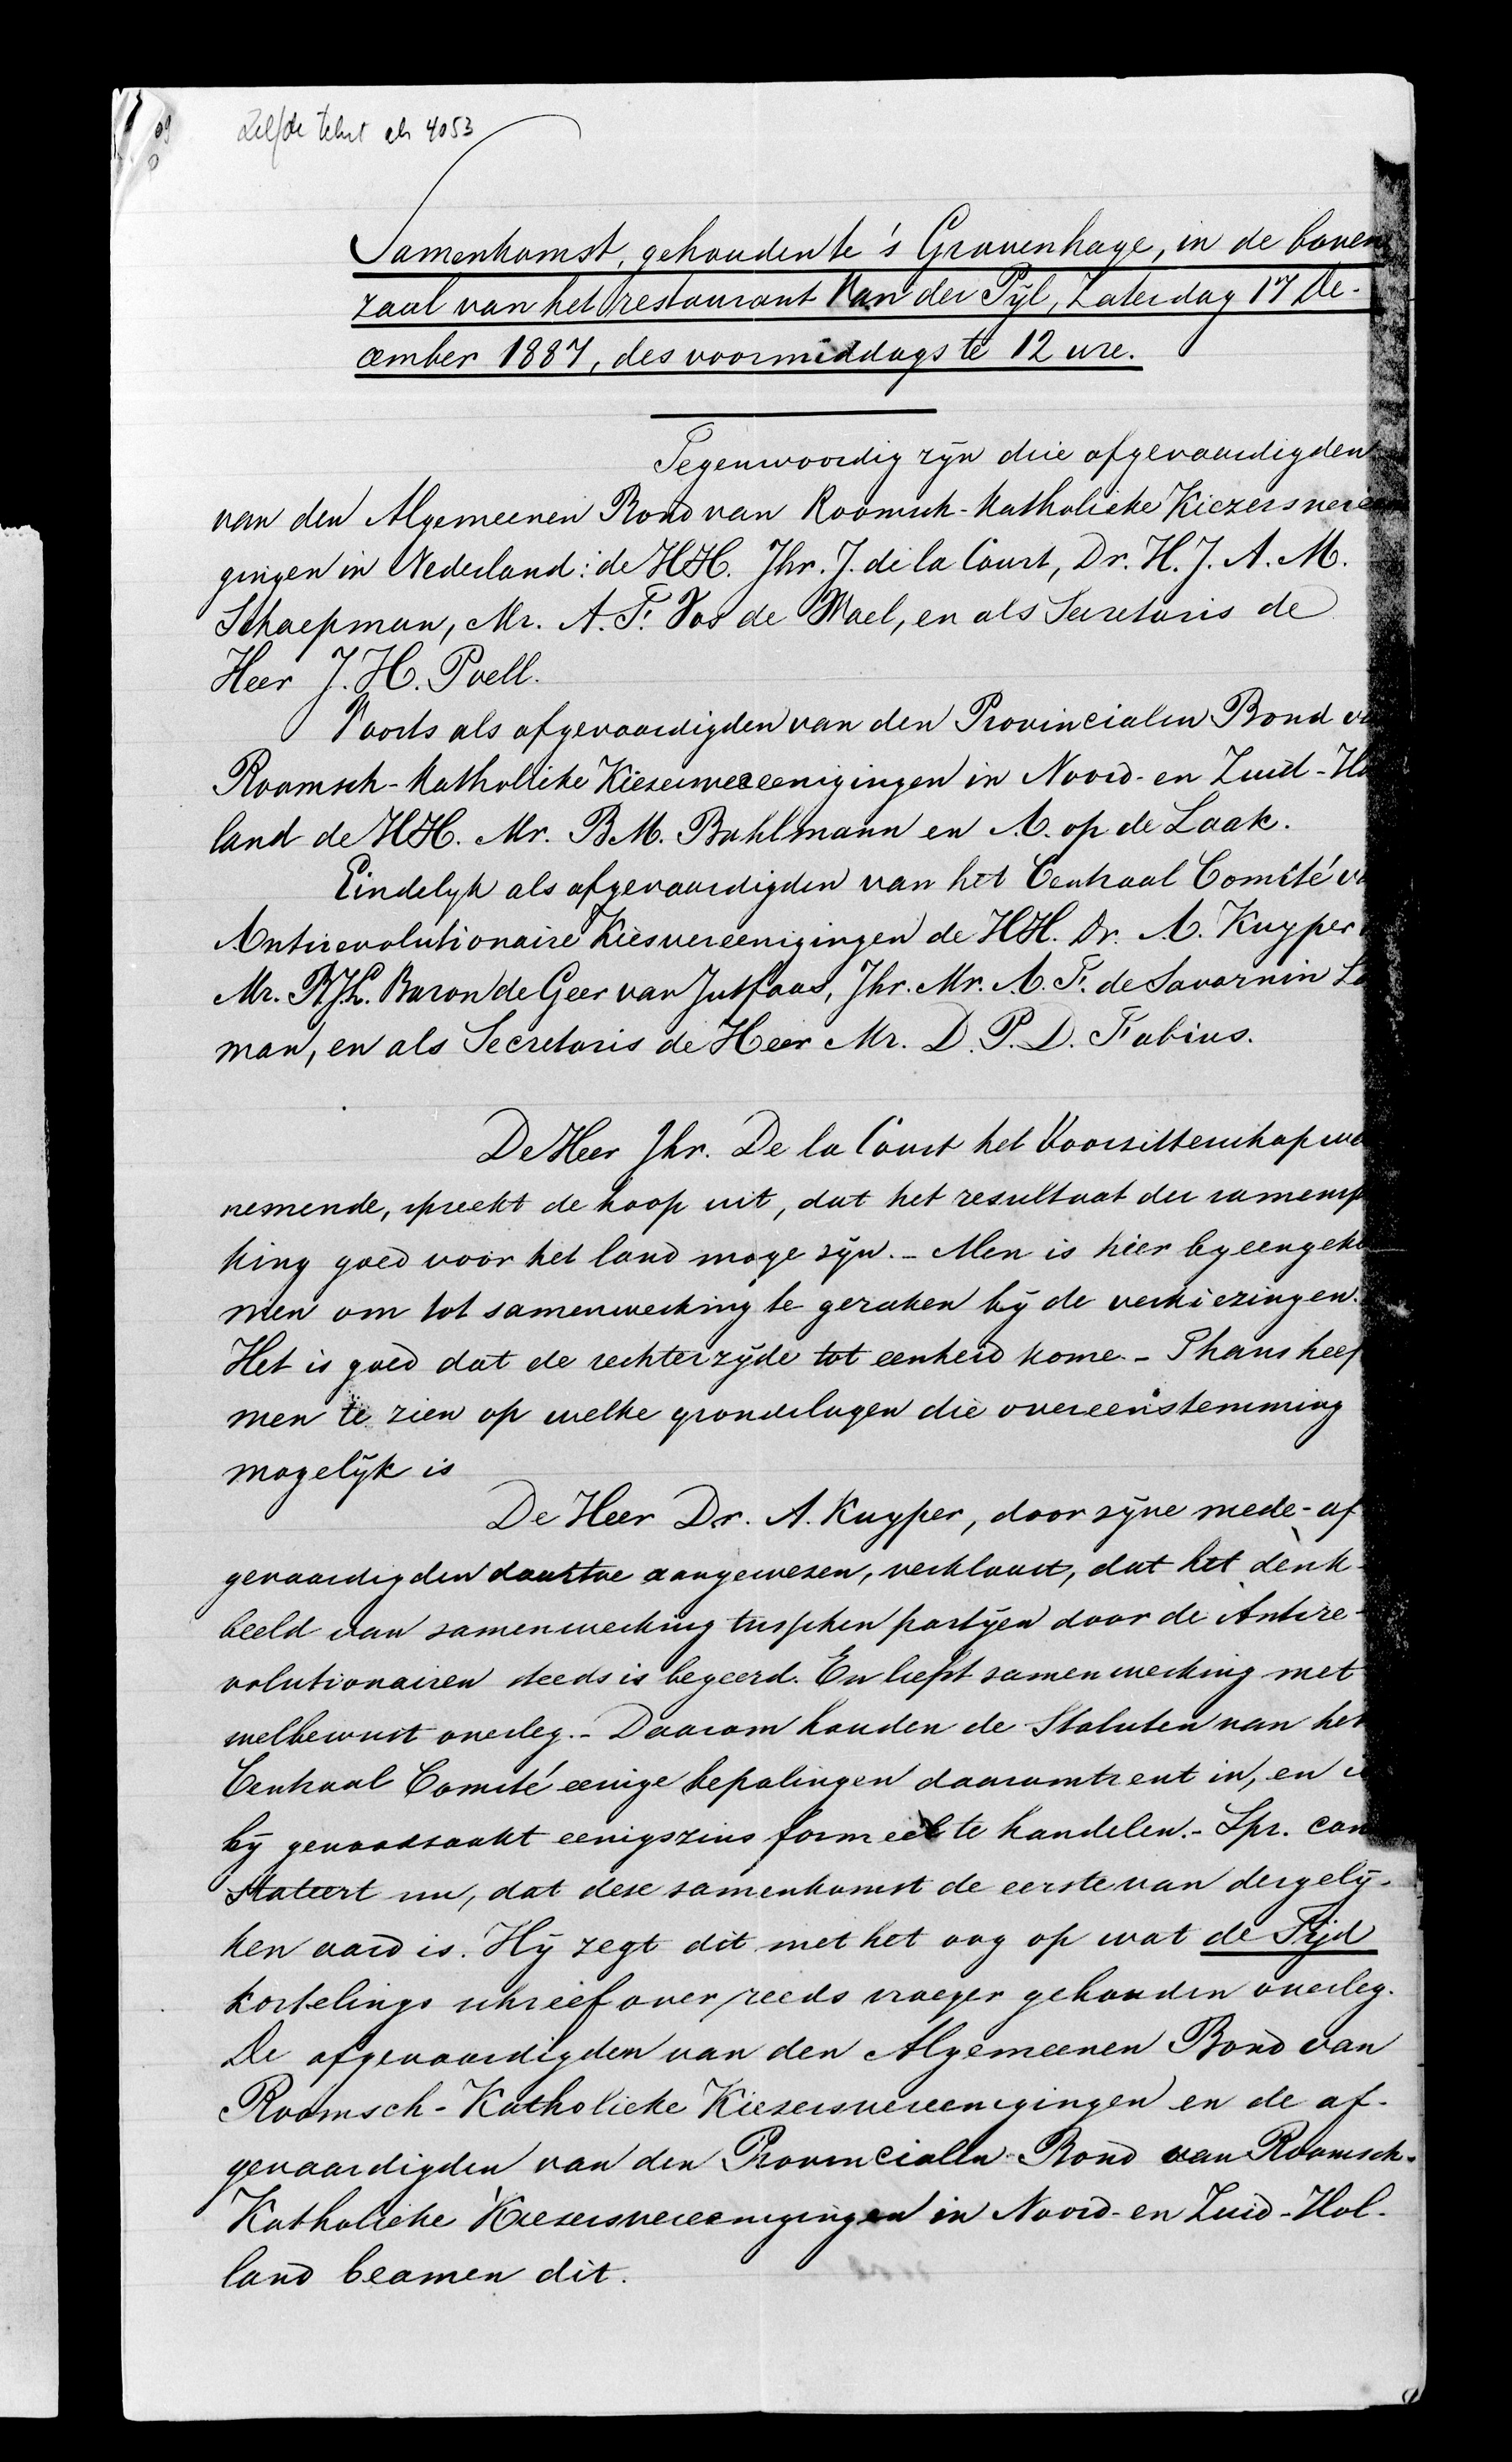 Zelfde tekst als 4053
Samenkomst, gehouden te 's Gravenhage, in de boven
zaal van het restaurant Van der Pijl, Zaterdag 17 De-
cember 1887, des voormiddags te 12 ure.
Tegenwoordig zijn drie afgevaardigden
van den Algemeenen Bond van Roomsch-Katholieke Kiezersvereeni
gingen in Nederland: de HH. Jhr. J. de la Court, Dr. H. J. A. M.
Schaepman, Mr. A. F. Vos de Wael, en als Secretaris de
Heer J. H. Poell.
Voorts als afgevaardigden van den Provincialen Bond va
Roomsch-Katholieke Kiezersvereenigingen in Noord- en Zuid-Hol
land de HH. Mr. B.M. Bahlmann en A. op de Laak.
Eindelijk als afgevaardigden van het Centraal Comité va
Antirevolutionaire Kiesvereenigingen de HH. Dr. A. Kuyper
Mr. B.J.L. Baron de Geer van Jutfaas, Jhr. Mr. A. F. de Savornin Lo
man, en als Secretaris de Heer Mr. D. P. D. Fabius.
De Heer Jhr. De la Court het Voorzitterschap wa
nemende, spreekt de hoop uit, dat het resultaat der samenspr
king goed voor het land moge zijn. - Men is hier bijeengeko
men om tot samenwerking te geraken bij de verkiezingen.
Het is goed dat de rechterzijde tot eenheid kome. - Thans heef
men te zien op welke grondslagen die overeenstemming
mogelijk is
De Heer Dr. A. Kuyper, door zijne mede-af
gevaardigden daartoe aangewezen, verklaart, dat het denk-
beeld van samenwerking tusschen partijen door de Antire-
volutionairen steeds is begeerd. En liefst samenwerking met
welbewust overleg. - Daarom houden de Statuten van het
Centraal Comité eenige bepalingen daaromtrent in, en is
hij genoodzaakt eenigszins formeel te handelen. - Spr. con
stateert nu, dat deze samenkomst de eerste van dergelij-
ken aard is. Hij zegt dit met het oog op wat de Tijd
kortelings schreef over reeds vroeger gehouden overleg.
De afgevaardigden van den Algemeenen Bond van
Roomsch-Katholieke Kiezersvereenigingen en de af-
gevaardigden van den Provincialen Bond van Roomsch-
Katholieke Kiezersvereenigingen in Noord- en Zuid-Hol-
land beamen dit.